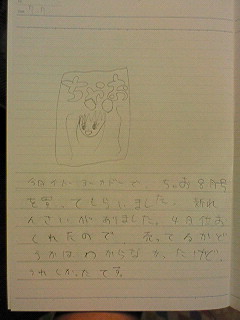 ちゃお
今日イトーヨーカドーで、ちゃお8月号
を買ってもらいました。新れ
んさいがありました。4日位お
くれたので 売ってるかど
うかはわからなかったけど
うれしかったです。